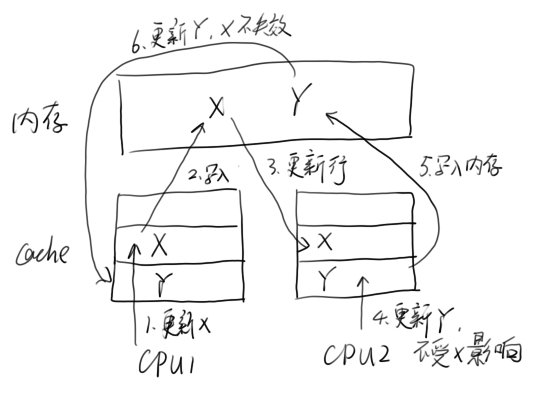 6.更新Y,X不失效
内存
X Y
2.写入
3.更新行
5.写入内存
Cache
X
Y
X
Y
1.更新X
CPU1
4.更新Y,
不受X影响
CPU2